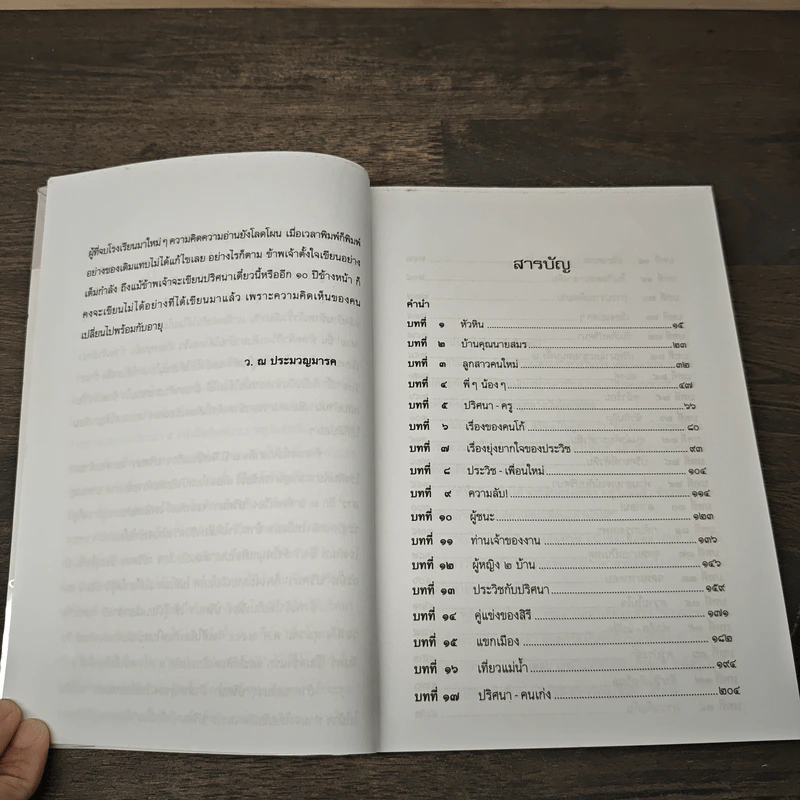 ผู้ที่จบโรงเรียนมาใหม่ๆ ความคิดความอ่านยังโลดโผน เมื่อเวลาพิมพ์ก็พิมพ์
อย่างของเดิมแทบไม่ได้แก้ไขเลย อย่างไรก็ตาม ข้าพเจ้าตั้งใจเขียนอย่าง
เต็มกำลัง ถึงแม้ข้าพเจ้าจะเขียนปริศนาเดี๋ยวนี้หรืออีก ๑๐ ปีข้างหน้า ก็
คงจะเขียนไม่ได้อย่างที่ได้เขียนมาแล้ว เพราะความคิดเห็นของคน
เปลี่ยนไปพร้อมกับอายุ
ว. ณ ประมวญมารค
สารบัญ
คำนำ
บทที่ ๑ หัวหิน ๑๕
บทที่ ๒ บ้านคุณนายสมร ๒๓
บทที่ ๓ ลูกสาวคนใหม่ ๓๒
บทที่ ๔ พี่ๆ น้องๆ ๔๗
บทที่ ๕ ปริศนา - ครู ๖๖
บทที่ ๖ เรื่องของคนโก้ ๘๐
บทที่ ๗ เรื่องยุ่งยากใจของประวิช ๙๓
บทที่ ๘ ประวิช - เพื่อนใหม่ ๑๐๔
บทที่ ๙ ความลับ! ๑๑๔
บทที่ ๑๐ ผู้ชนะ ๑๒๓
บทที่ ๑๑ ท่านเจ้าของงาน ๑๓๖
บทที่ ๑๒ ผู้หญิง ๒ บ้าน ๑๔๖
บทที่ ๑๓ ประวิชกับปริศนา ๑๕๙
บทที่ ๑๔ คู่แข่งของสิรี ๑๗๑
บทที่ ๑๕ แขกเมือง ๑๘๒
บทที่ ๑๖ เที่ยวแม่น้ำ ๑๙๔
บทที่ ๑๗ ปริศนา - คนเก่ง ๒๐๔